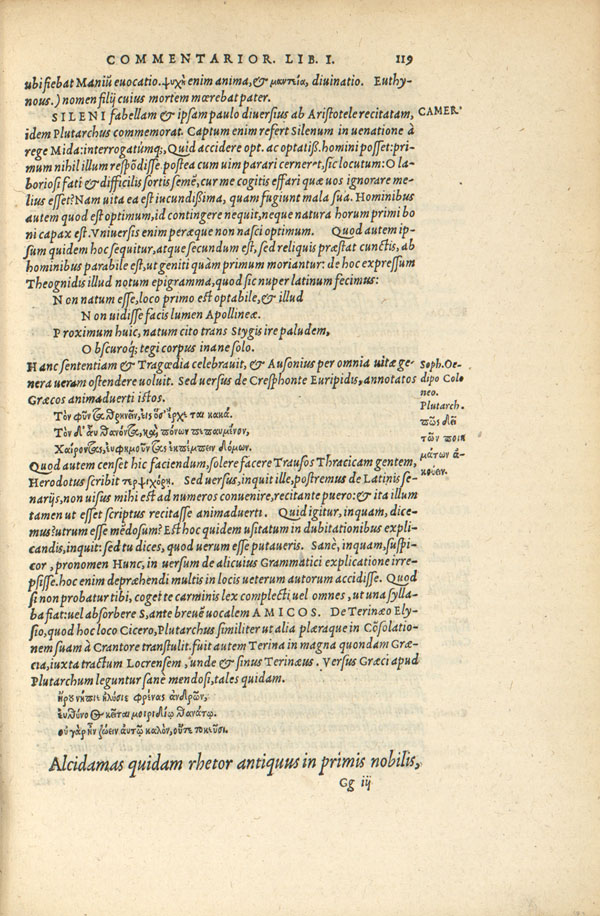 COMMENTARIOR. LIB. I. 119
ubi fiebat Maniũ euocatio. ψυχὴ enim anima, & μαντεία, diuinatio. Euthy-
nous.) nomen filij cuius mortem mœrebat pater.
SILENI fabellam & ipsam paulo diuersius ab Aristotele recitatam, CAMER.
idem Plutarchus commemorat. Captum enim refert Silenum in uenatione à
rege Mida: interrogatúmq;, Quid accidere opt. ac optatiß. homini posset: pri-
mum nihil illum respõdisse. postea cum uim parari cerneret, sic locutum: O la-
boriosi fati & difficilis sortis semẽ, cur me cogitis effari quæ uos ignorare me-
lius esset? Nam uita ea est iucundissima, quam fugiunt mala sua. Hominibus
autem quod est optimum, id contingere nequit, neque natura horum primi bo
ni capax est. Vniuersis enim peræque non nasci optimum. Quod autem ip-
sum quidem hoc sequitur, atque secundum est, sed reliquis præstat cunctis, ab
hominibus parabile est, ut geniti quàm primum moriantur: de hoc expressum
Theognidis illud notum epigramma, quod sic nuper latinum fecimus:
Non natum esse, loco primo est optabile, & illud
Non uidisse facis lumen Apollineæ.
Proximum huic, natum cito trans Stygis ire paludem,
Obscuroq; tegi corpus inane solo.
Hanc sententiam & Tragœdia celebrauit, & Ausonius per omnia uitæ ge-
nera ueram ostendere uoluit. Sed uersus de Cresphonte Euripidis, annotatos
Græcos animaduerti istos.
Soph. Oe-
dipo Colo
neo.
Plutarch.
πῶς δεῖ
τῶν ποιη
μάτων ἀ-
κούειν.
Τὸν φῦντα θρηνεῖν, εἰς ὅσ' ἔρχεται κακά.
Τὸν δ' αὖ θανόντα, καὶ πόνων πεπαυμένον,
Χαίροντας, εὐφημοῦντας ἐκπέμπειν δόμων.
Quod autem censet hic faciendum, solere facere Trausos Thracicam gentem,
Herodotus scribit τερψιχόρη. Sed uersus, inquit ille, postremus de Latinis se-
narijs, non uisus mihi est ad numeros conuenire, recitante puero: & ita illum
tamen ut esset scriptus recitasse animaduerti. Quid igitur, inquam, dice-
mus? utrum esse mẽdosum? Est hoc quidem usitatum in dubitationibus expli-
candis, inquit: sed tu dices, quod uerum esse putaueris. Sanè, inquam, suspi-
cor, pronomen Hunc, in uersum de alicuius Grammatici explicatione irre-
psisse. hoc enim depræhendi multis in locis ueterum autorum accidisse. Quod
si non probatur tibi, coget te carminis lex complecti uel omnes, ut una sylla-
ba fiat: uel absorbere S, ante breuẽ uocalem AMICOS. De Terinæo Ely-
sio, quod hoc loco Cicero, Plutarchus similiter ut alia pleraque in Cõsolatio-
nem suam à Crantore transtulit. fuit autem Terina in magna quondam Græ-
cia, iuxta tractum Locrensem, unde & sinus Terinæus. Versus Græci apud
Plutarchum leguntur sanè mendosi, tales quidam.
φρένας ἀνδρῶν,
θανάτῳ.
οὐ γὰρ ἦν ζώειν αὐτῷ καλὸν, οὔτε τοκεῦσι.
Alcidamas quidam rhetor antiquus in primis nobilis,
Gg iij